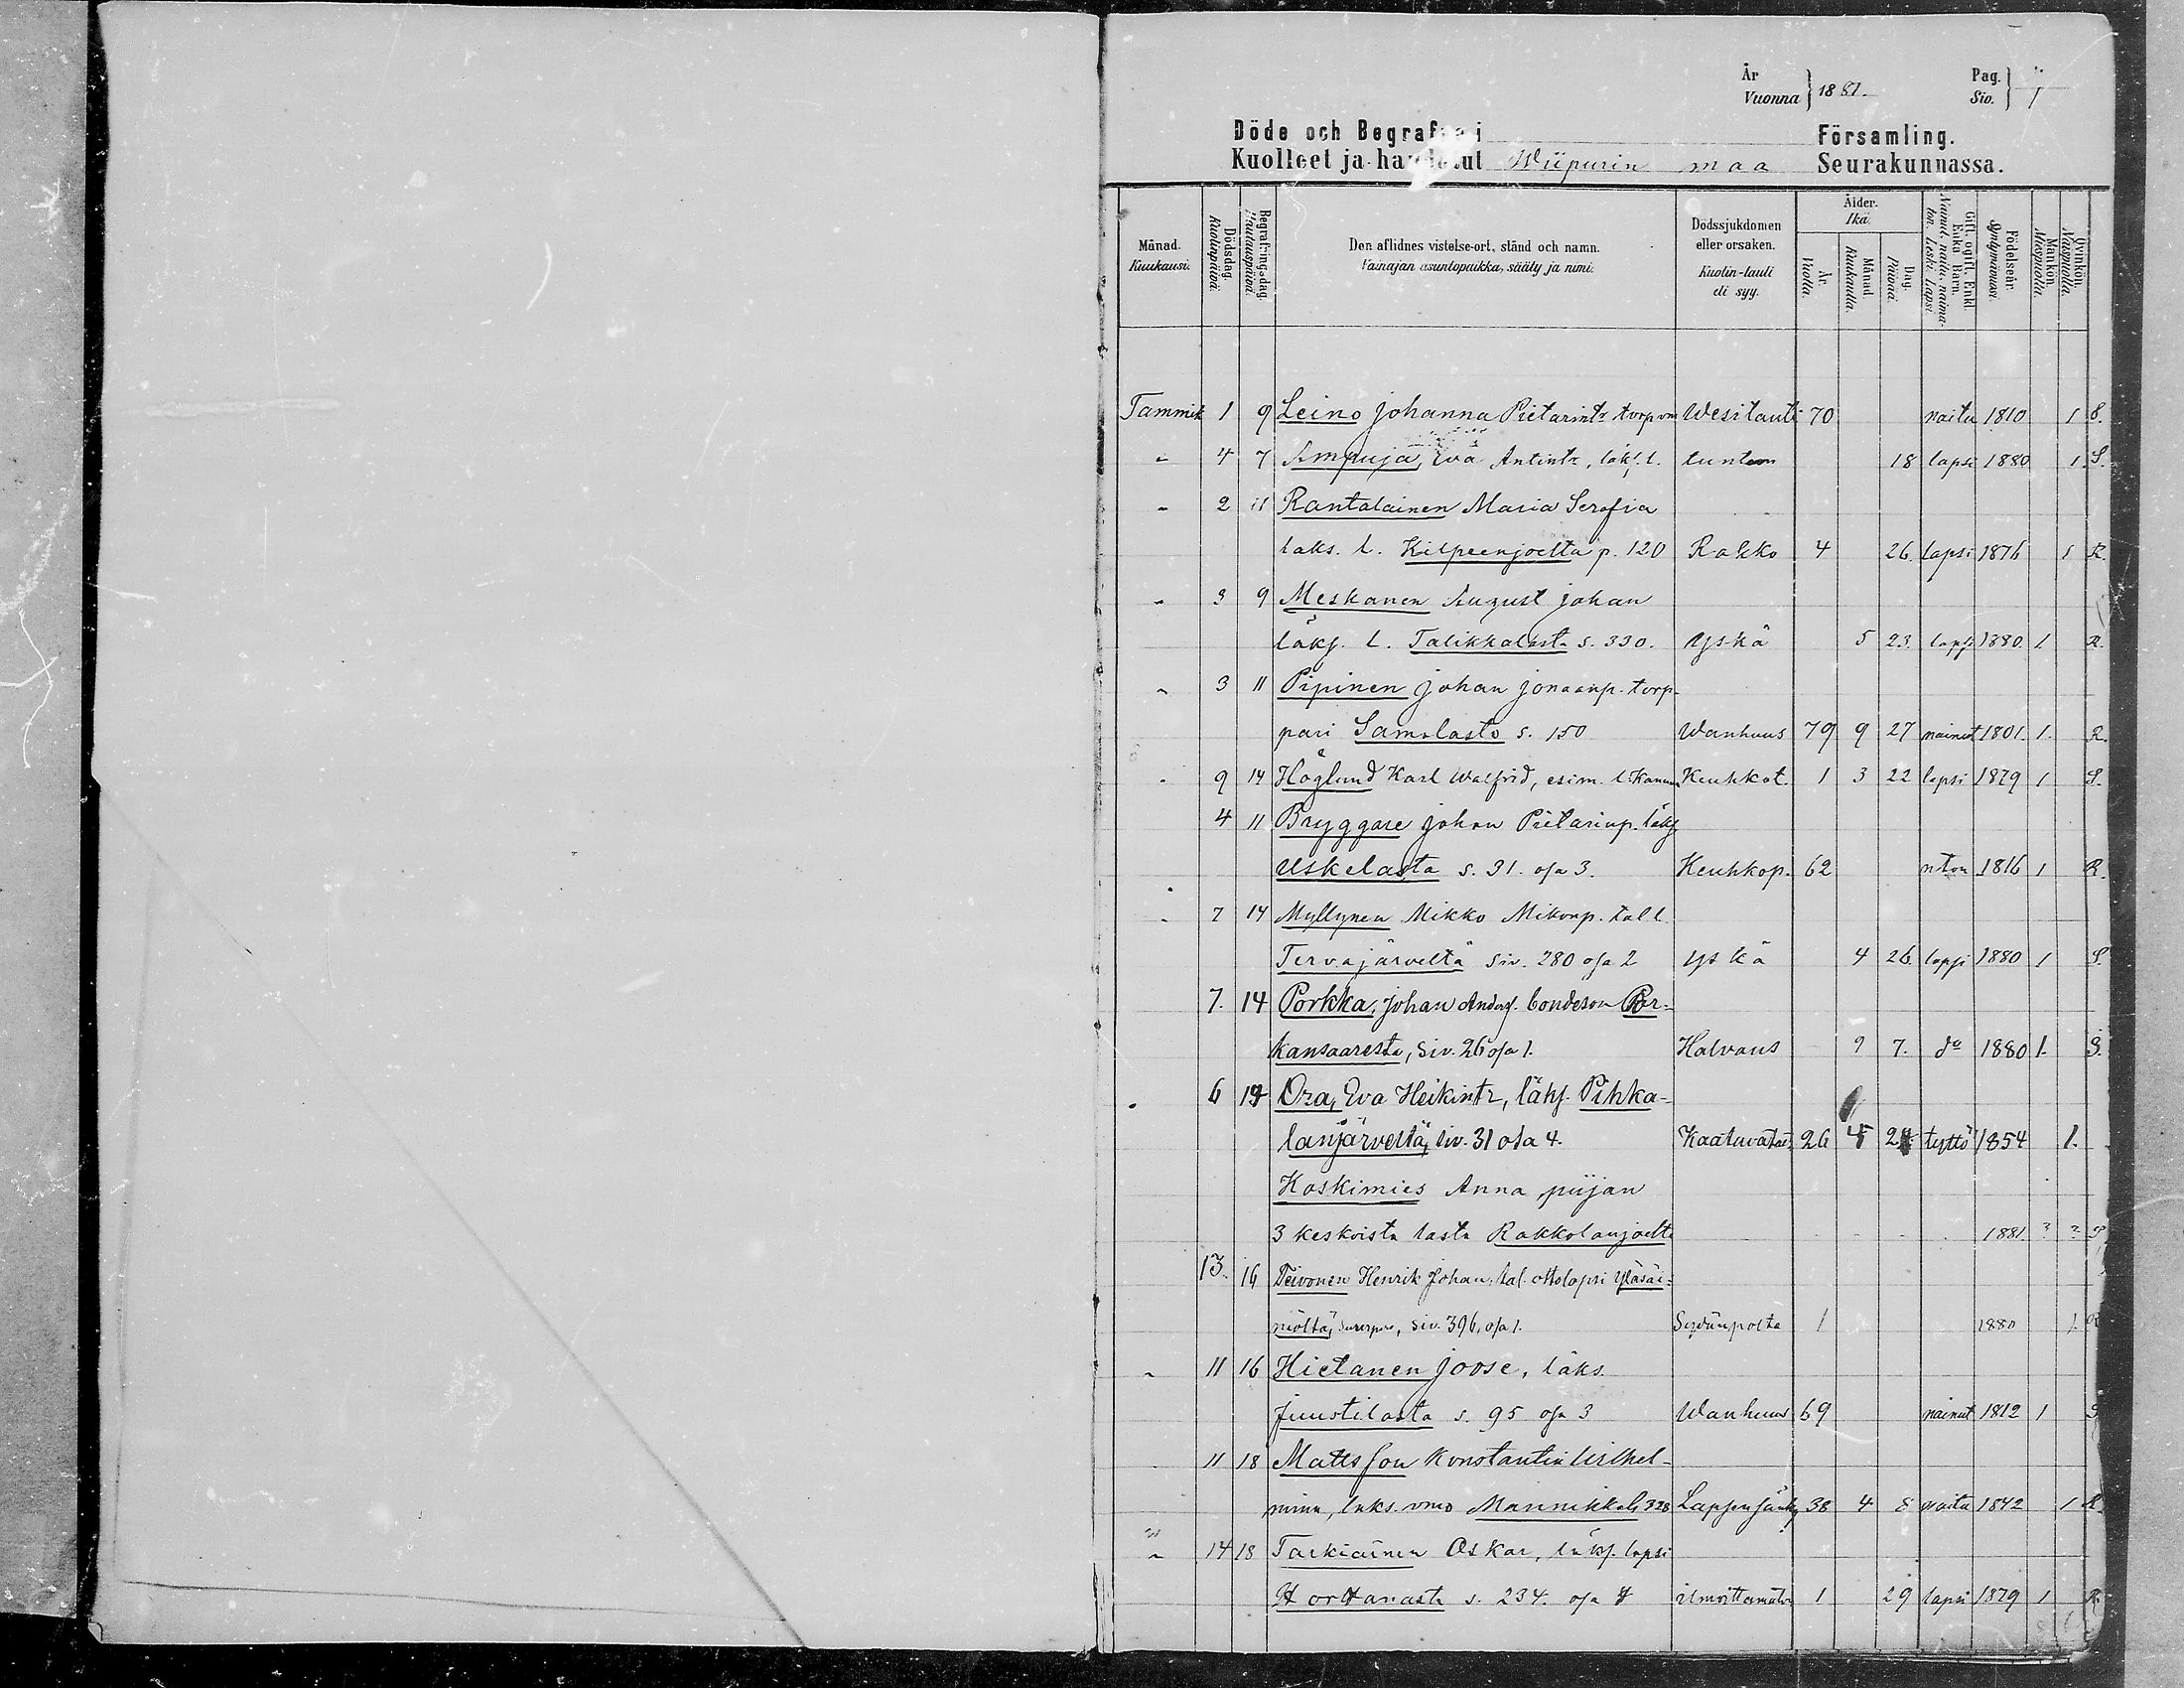 År
Vuonna } 1881. Pag.
Sio. } 1
Döde och Begrafna i Församling.
Kuolleet ja haudatut Wiipurin maa Seurakunnassa.
Månad. Kuukausi.
Dödsdag. Kuolinpäivä.
Begrafningsdag. Hautauspäivä.
Den aflidnes vistelse-ort, stånd och namn.
Vainajan asuntopaikka, sääty ja nimi.
Dödssjukdomen eller orsaken.
Kuolin-tauti eli syy.
Ålder. Ikä.
År. Vuotta.
Månad. Kuukautta.
Dag. Päivää.
Gift, ogift, Enkl. Enka Barn.
Nainut, naitu, naimaton. Leski. Lapsi.
Födelseår. Syntymävuosi.
Mankön. Miespuolia.
Qvinkön. Naispuolia.
Tammik 1 9 Leino Johanna Pietarintr torp vm Wesitauti 70 naitu 1810 1 S.
" 4 7 Ampuja, Eva Antintr, läks. l. tuntem 18 lapsi 1880 1. S.
" 2 11 Rantalainen Maria Serafia
laks. l. Kilpeenjoelta p. 120 Rokko 4 26. lapsi 1876 1 R.
" 3 9 Meskanen August Johan
läks. l. Talikkalasta s. 330. Yskä 5 23. lapsi 1880. 1 R.
" 3 11 Pipinen Johan Jonaanp. torp-
pari Samolasta s. 150 Wanhuus 79 9 27 nainut 1801. 1. R.
" 9 14 Höglund Karl Walfrid, esim. l. Keuhkot. 1 3 22 lapsi 1879 1 S.
4 11 Bryggare Johan Pietarinp. läks
Uskelasta s. 31. osa 3. Keuhkop. 62 nton 1816 1 R.
" 7 14 Myllynen Mikko Mikonp. tal l.
Tervajärveltä siv. 280 osa 2 Yskä 4 26. lapsi 1880 1 S.
7. 14 Porkka, Johan Anders. bondeson Por-
kansaaresta, siv. 26 osa 1. Halvaus 9 7. do 1880 1. S.
" 6 Ora, Eva Heikintr, läks. Pihka-
lanjärveltä, siv. 31 osa 4. Kaatuvatau 26 4 tyttö 1854 1.
Koskimies Anna piijan
3 keskoista lasta Rakkolanjoelta 1881 3 S
13. 16 Teivonen Henrik Johan, tal. ottolapsi Yläsäi-
niöltä, siv. 396, osa 1. Sydänpolte 1 1880 1. R
" 11 16 Hietanen Joose, läks.
Juustilasta s. 95 osa 3 Wanhuus 69 nainut 1812 1 S
11 18 Matsson Konstantia Wilhel-
mina, läks. vmo Mannikkala 328 Lapsensänky 38 4 8 naitu 1842 1 R.
" 14 18 Tarkiainen Oskar, läks. lapsi
Horttanasta s. 234. osa ilmoittamaton 1 29 lapsi 1879 1 R.